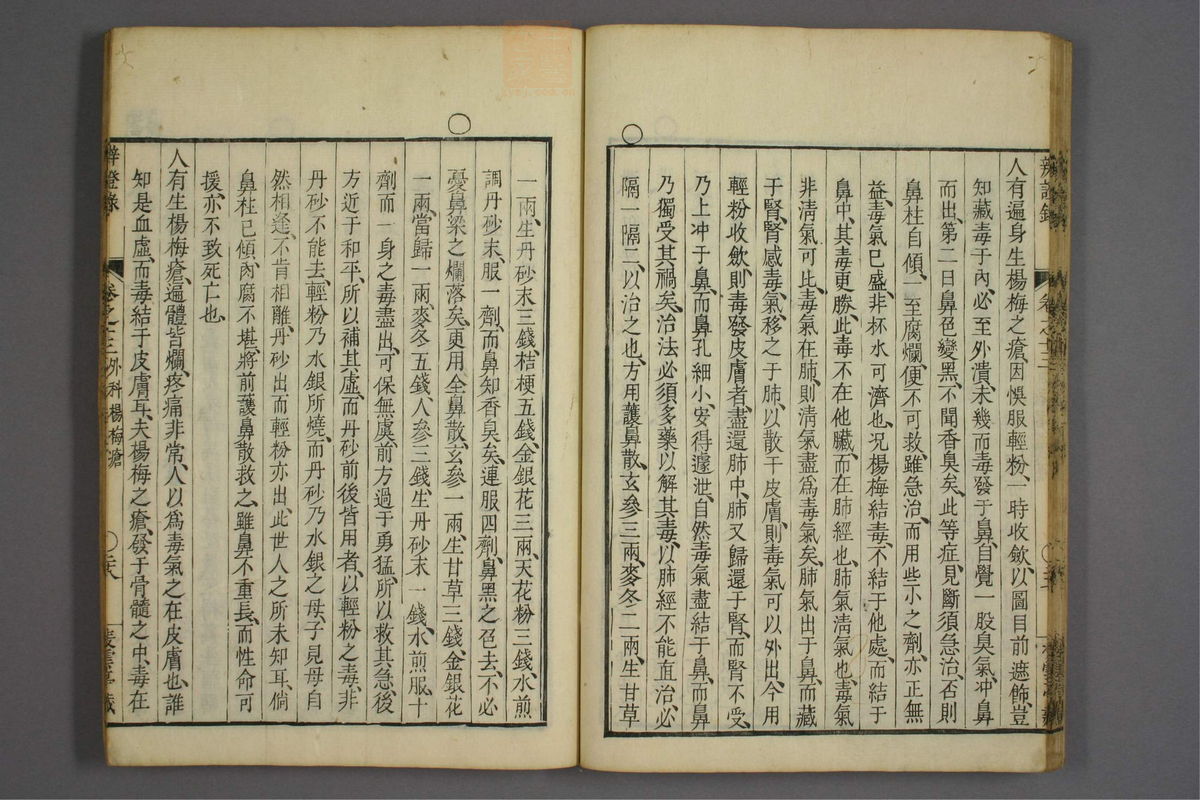 人有遍身生楊梅之瘡因悞服輕粉一時收斂以圖目前遮飾豈
知藏毒于內必至外潰未幾而毒發于鼻自覺一股臭氣冲鼻
而出第二日鼻色變黑不聞香臭矣此等症見斷須急治否則
鼻柱自傾一至腐爛便不可救雖急治而用些小之劑亦正無
益毒氣已盛非杯水可濟也况楊梅結毒不結于他處而結于
鼻中其毒更勝此毒不在他臟而在肺經也肺氣清氣也毒氣
非清氣可比毒氣在肺則清氣盡爲毒氣矣肺氣出于鼻而藏
于腎腎感毒氣移之于肺以散于皮膚則毒氣可以外出今用
輕粉收斂則毒發皮膚者盡還肺中肺又歸還于腎而腎不受
乃上冲于鼻而鼻孔細小安得遽泄自然毒氣盡結于鼻而鼻
乃獨受其禍矣治法必須多藥以解其毒以肺經不能直治必
隔一隔二以治之也方用護鼻散玄參三兩麥冬二兩生甘草
一兩生丹砂末三錢桔梗五錢金銀花三兩天花粉三錢水煎
調丹砂末服一劑而鼻知香臭矣連服四劑鼻黑之色去不必
憂鼻梁之爛落矣更用全鼻散玄參一兩生甘草三錢金銀花
一兩當歸一兩麥冬五錢人參三錢生丹砂末一錢水煎服十
劑而一身之毒盡出可保無虞前方過于勇猛所以救其急後
方近于和平所以補其虛而丹砂前後皆用者以輕粉之毒非
丹砂不能去輕粉乃水銀所燒而丹砂乃水銀之母子見母自
然相逢不肯相離丹砂出而輕粉亦出此世人之所未知耳倘
鼻柱已傾內腐不堪將前護鼻散救之雖鼻不重長而性命可
援亦不致死亡也
人有生楊梅瘡遍體皆爛疼痛非常人以爲毒氣之在皮膚也誰
知是血虛而毒結于皮膚耳夫楊梅之瘡發于骨髓之中毒在
辨證錄
卷之十三外科楊梅瘡